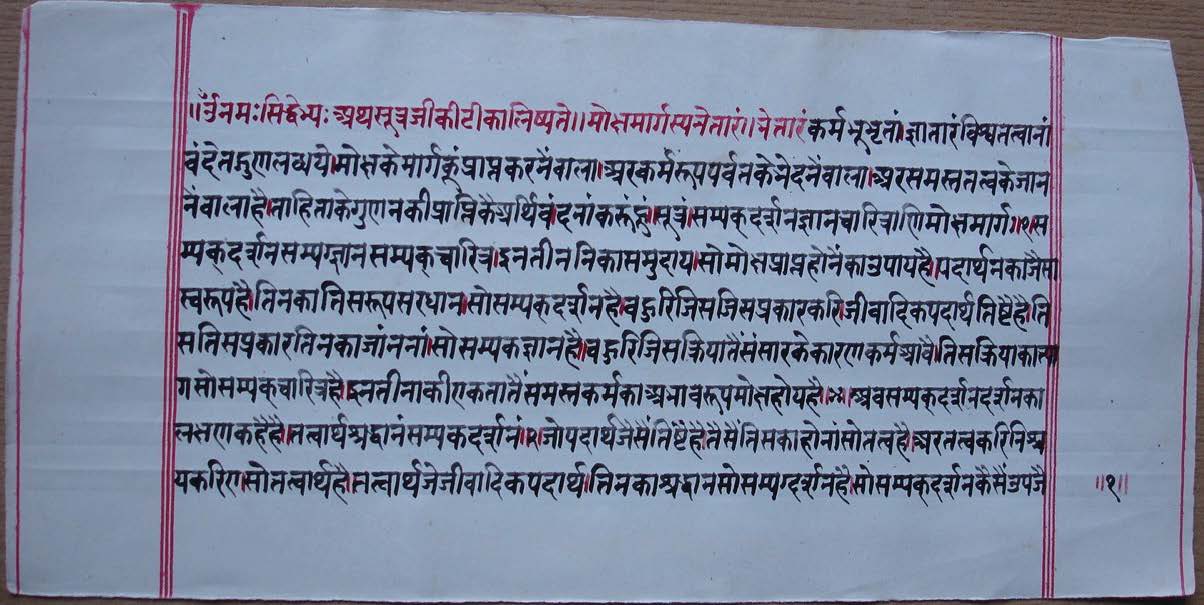 ॥ॐनमःसिद्धेभ्यःअथसूत्रजीकीटीकालिष्यते॥मोक्षमार्गस्यनेतारं॥नेतारंकर्मभूभृतां।ज्ञातारंविश्वतत्वानां
वंदेतद्गुणलब्धये।मोक्षकेमार्गकूंप्राप्तकरनैंवाला।अरकर्मरूपपर्वतकेभेदनैंवाला।अरसमस्ततत्वकेजान
नैंवालाहै।ताहिताकेगुणनकीप्राप्तिकैअर्थिवंदनांकरूंहूं।सूत्रं।सम्यक्दर्शनज्ञानचारित्राणिमोक्षमार्गः।१।स
म्यक्दर्शनसम्यग्ज्ञानसम्यक्चारित्र।इनतीननिकासमुदाय।सोमोक्षप्राप्तहोनेंकाउपायहै।पदार्थनकाजैसा
स्वरूपहै।तिनकातिसरूपसरधान।सोसम्यकदर्शनहै।बहुरिजिसजिसप्रकारकरि।जीवादिकपदार्थतिष्टैहै।ति
सतिसप्रकारतिनकाजांननां।सोसम्यकज्ञानहै।बहुरिजिसक्रियातैसंसारकेकारणकर्मआवै।तिसक्रियाकात्या
गसोसम्यक्चारित्रहै।इनतीनाकीएकतातैंसमस्तकर्मकाअभावरूपमोक्षहोयहै।अबसम्यक्दर्शनदर्शनका
लक्षणकहैहै।तत्वार्थश्रद्धानंसम्यकदर्शनं।२।जोपदार्थजैसैंतिष्टैहै।तैसैंतिसकाहोनांसोतत्वहै।अरतत्वकरिनिश्च
यकरिए।सोतत्वार्थहै।तत्वार्थजेजीवादिकपदार्थ।तिनकाश्रद्धानसोसम्यग्दर्शनहै।सोसम्यक्दर्शनकैसैंउपजै
॥१॥